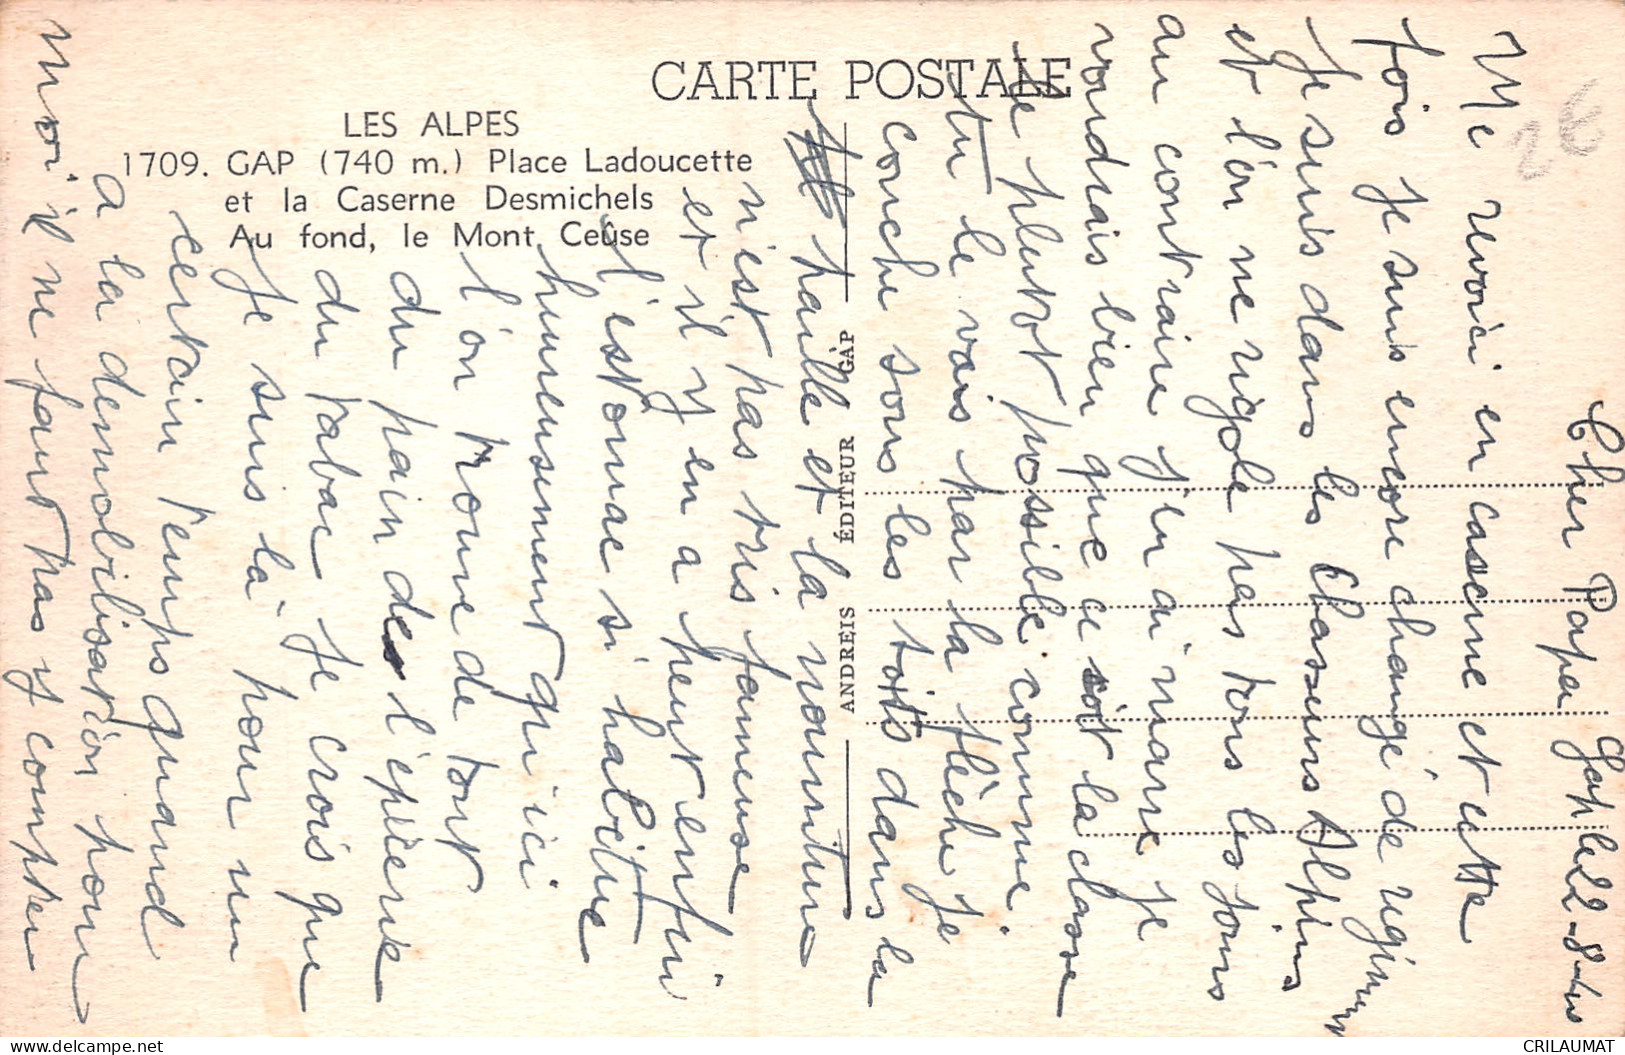 CARTE POSTALE
LES ALPES
1709. GAP (740 m.) Place Ladoucette
et la Caserne Desmichels
Au fond, le Mont Ceüse
ANDREIS ÉDITEUR GAP
Cher Papa Gap le 22-8-
Me revoici en caserne et cette
fois je suis encore changé de régiment
Je suis dans les Chasseurs Alpins
et l'on ne rigole pas tous les jours
au contraire j'en ai marre je
voudrais bien que ce soit la classe
le plutot possible comme
tu le vois par la flêche je
couche sous les toits dans la
paille et la nourriture
n'est pas tris fameuse
et il y en a peut enfin
l'estomac si habitue
hureusement qu'ici
l'on trouve de tout
du pain de l'épicerie
du tabac je crois que
Je suis là pour un
certain temps quand
a la demobilisation pour
moi il ne faut pas y compter
CRILAUMAT